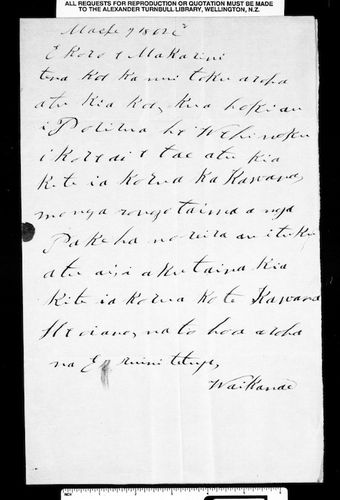 ALL REQUESTS FOR REPRODUCTION OR QUOTATION MUST BE MADE
TO THE ALEXANDER TURNBULL LIBRARY, WELLINGTON, N.Z.
E Koro e Makarini
tena koe ka nui toku aroha
atu kia koe, kua hoki au
i Poneke he Wehi noku
i kore ai e tae atu kia
Kite ia Korua ka Kawana,
mo nga rongo taima a nga
Pakeha no reira au i tuku
atu ai i aku taina kia
Kite ia korua ko te Kawana
Heoiano, na to hoa aroha
na
Waikanae